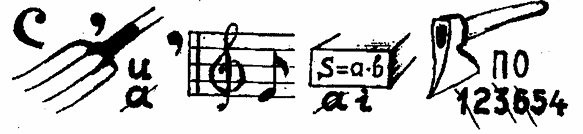 С , и ,
а
S=a·b
а і
ПО
123654